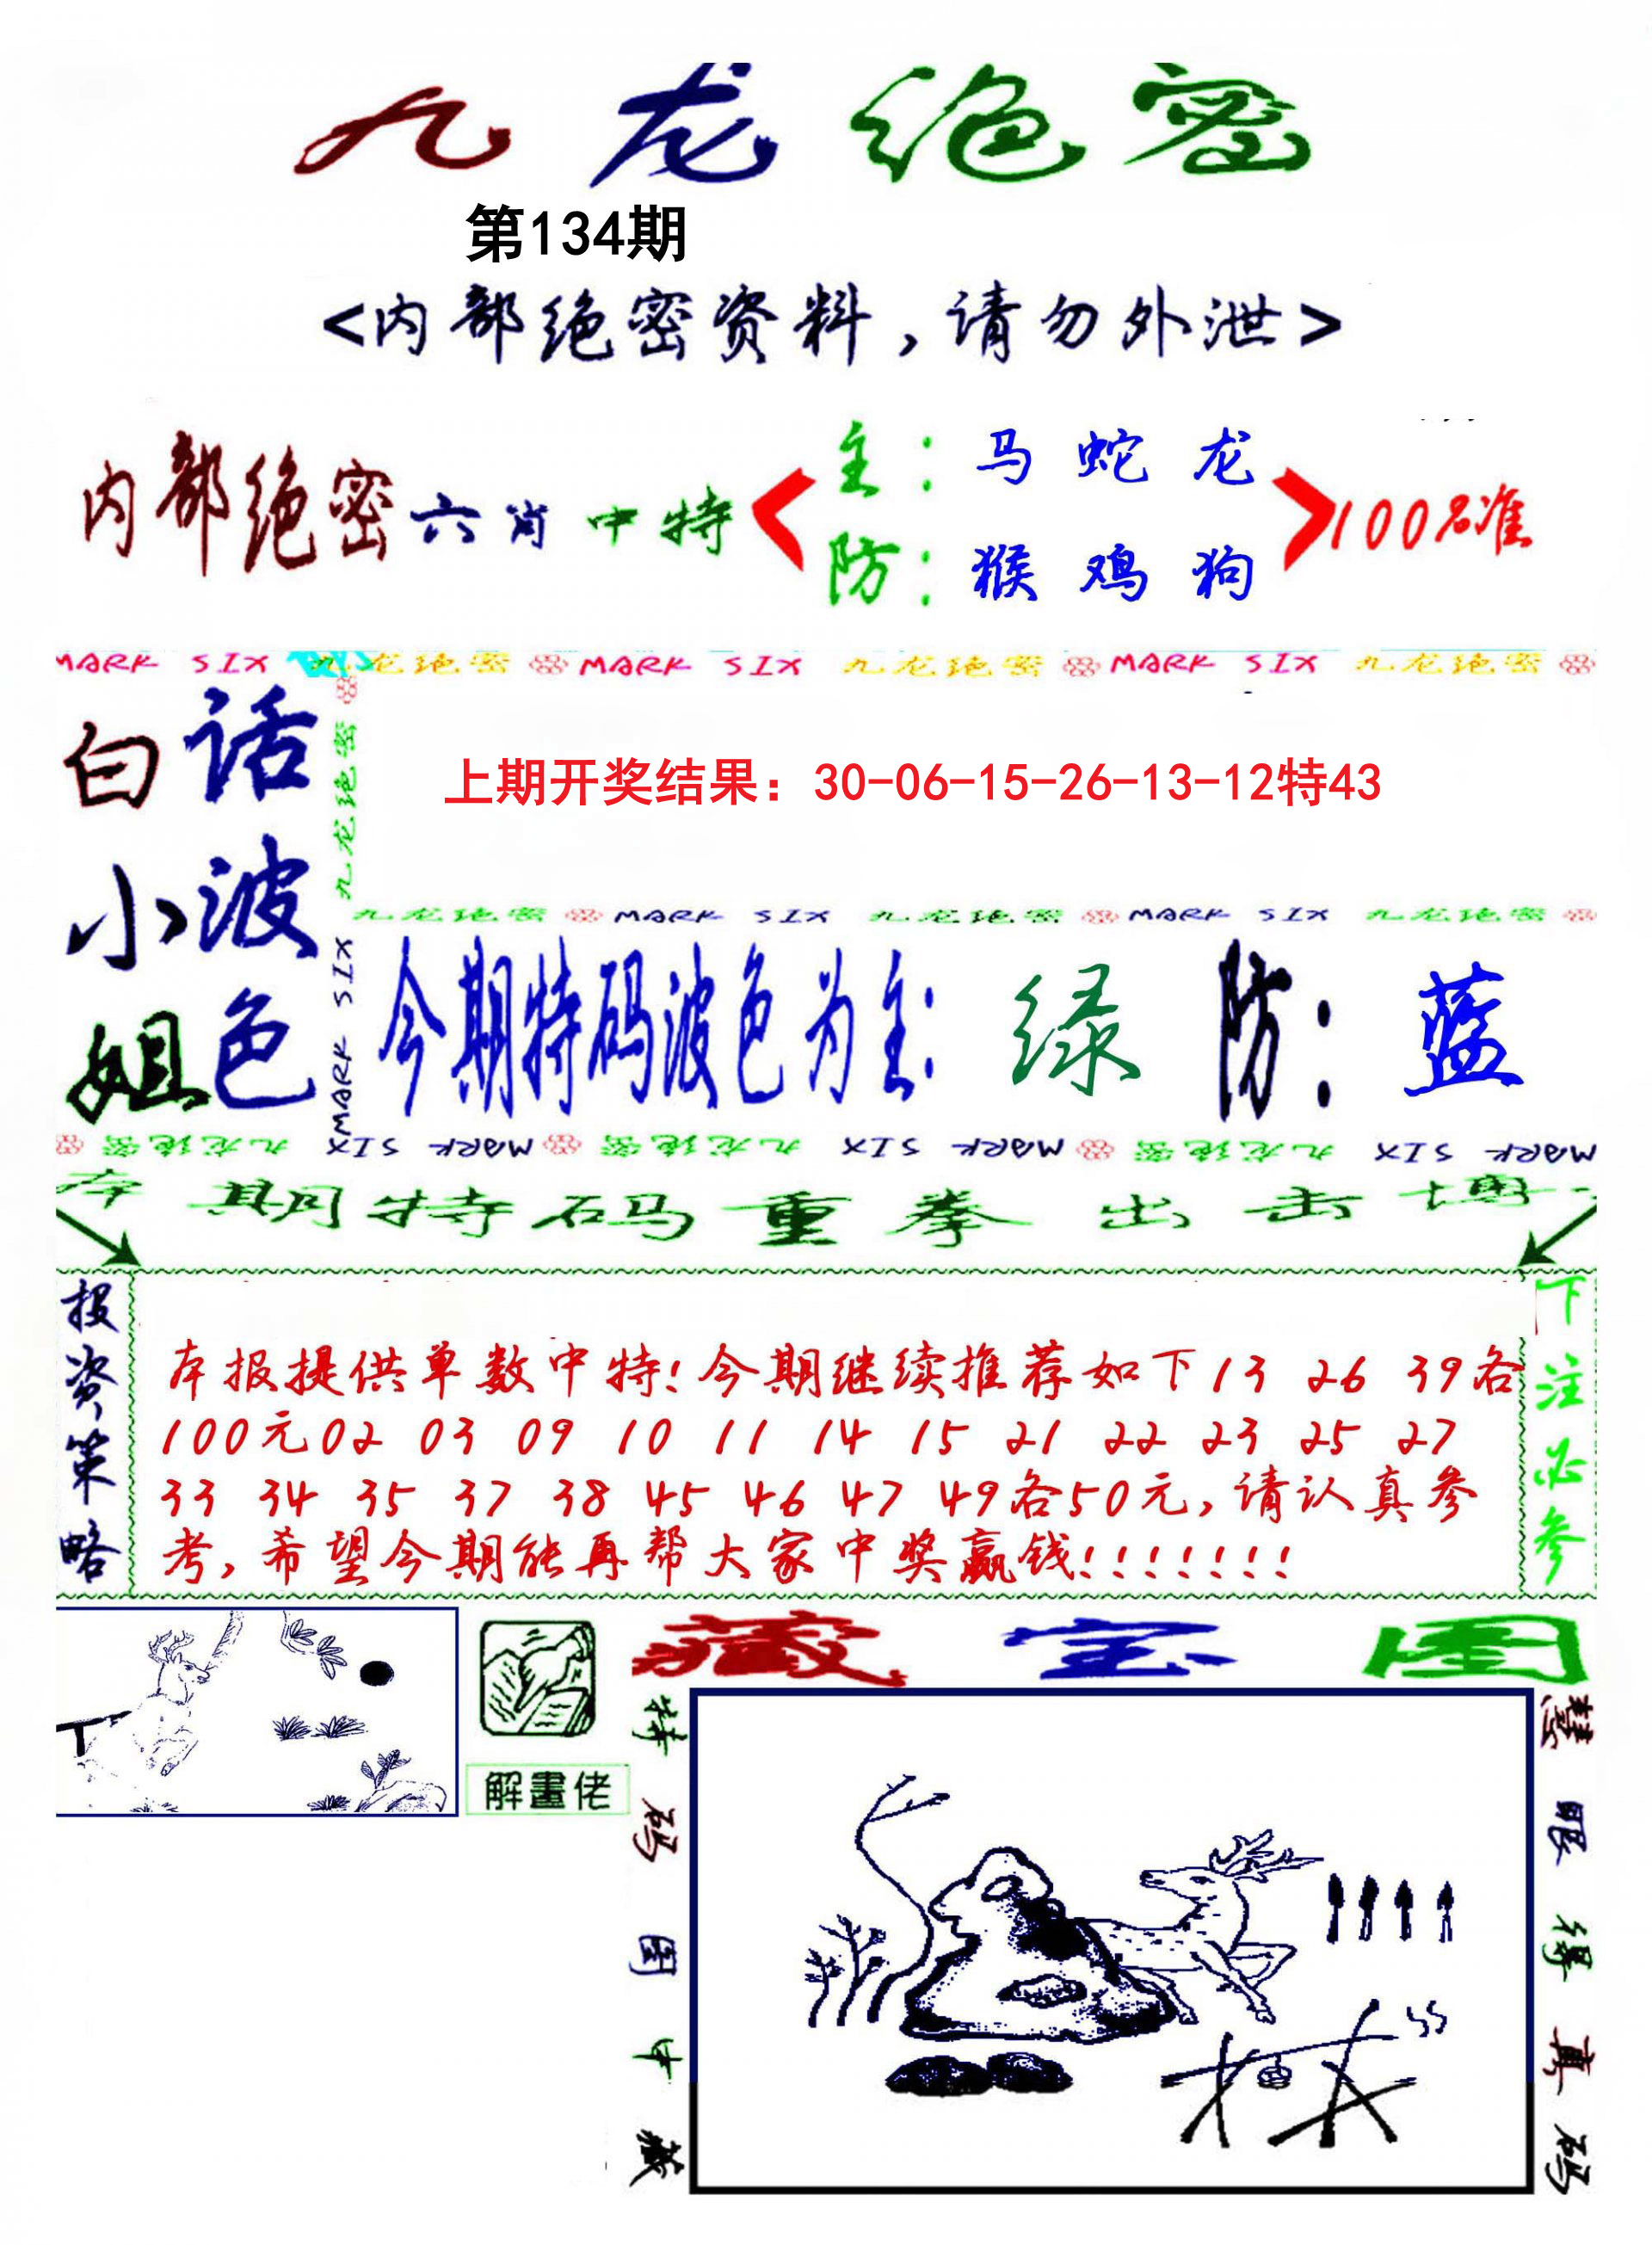 九龙绝密
第134期
<内部绝密资料,请勿外泄>
内部绝密六肖中特
主:马 蛇 龙
防:猴 鸡 狗
100%准
MARK SIX 九龙绝密 MARK SIX 九龙绝密 MARK SIX 九龙绝密
白小姐
话波色
九龙绝密
MARK SIX
上期开奖结果：30-06-15-26-13-12特43
九龙绝密 MARK SIX 九龙绝密 MARK SIX 九龙绝密
今期特码波色为主: 绿 防: 蓝
九龙绝密 MARK SIX 九龙绝密 MARK SIX 九龙绝密 MARK SIX
本期特码重拳出击博
投资策略
本报提供单数中特!今期继续推荐如下13 26 39各
100元02 03 09 10 11 14 15 21 22 23 25 27
33 34 35 37 38 45 46 47 49各50元,请认真参
考,希望今期能再帮大家中奖赢钱!!!!!!!
下注必参
解畫佬
藏宝图
特码图中藏
慧眼得真码